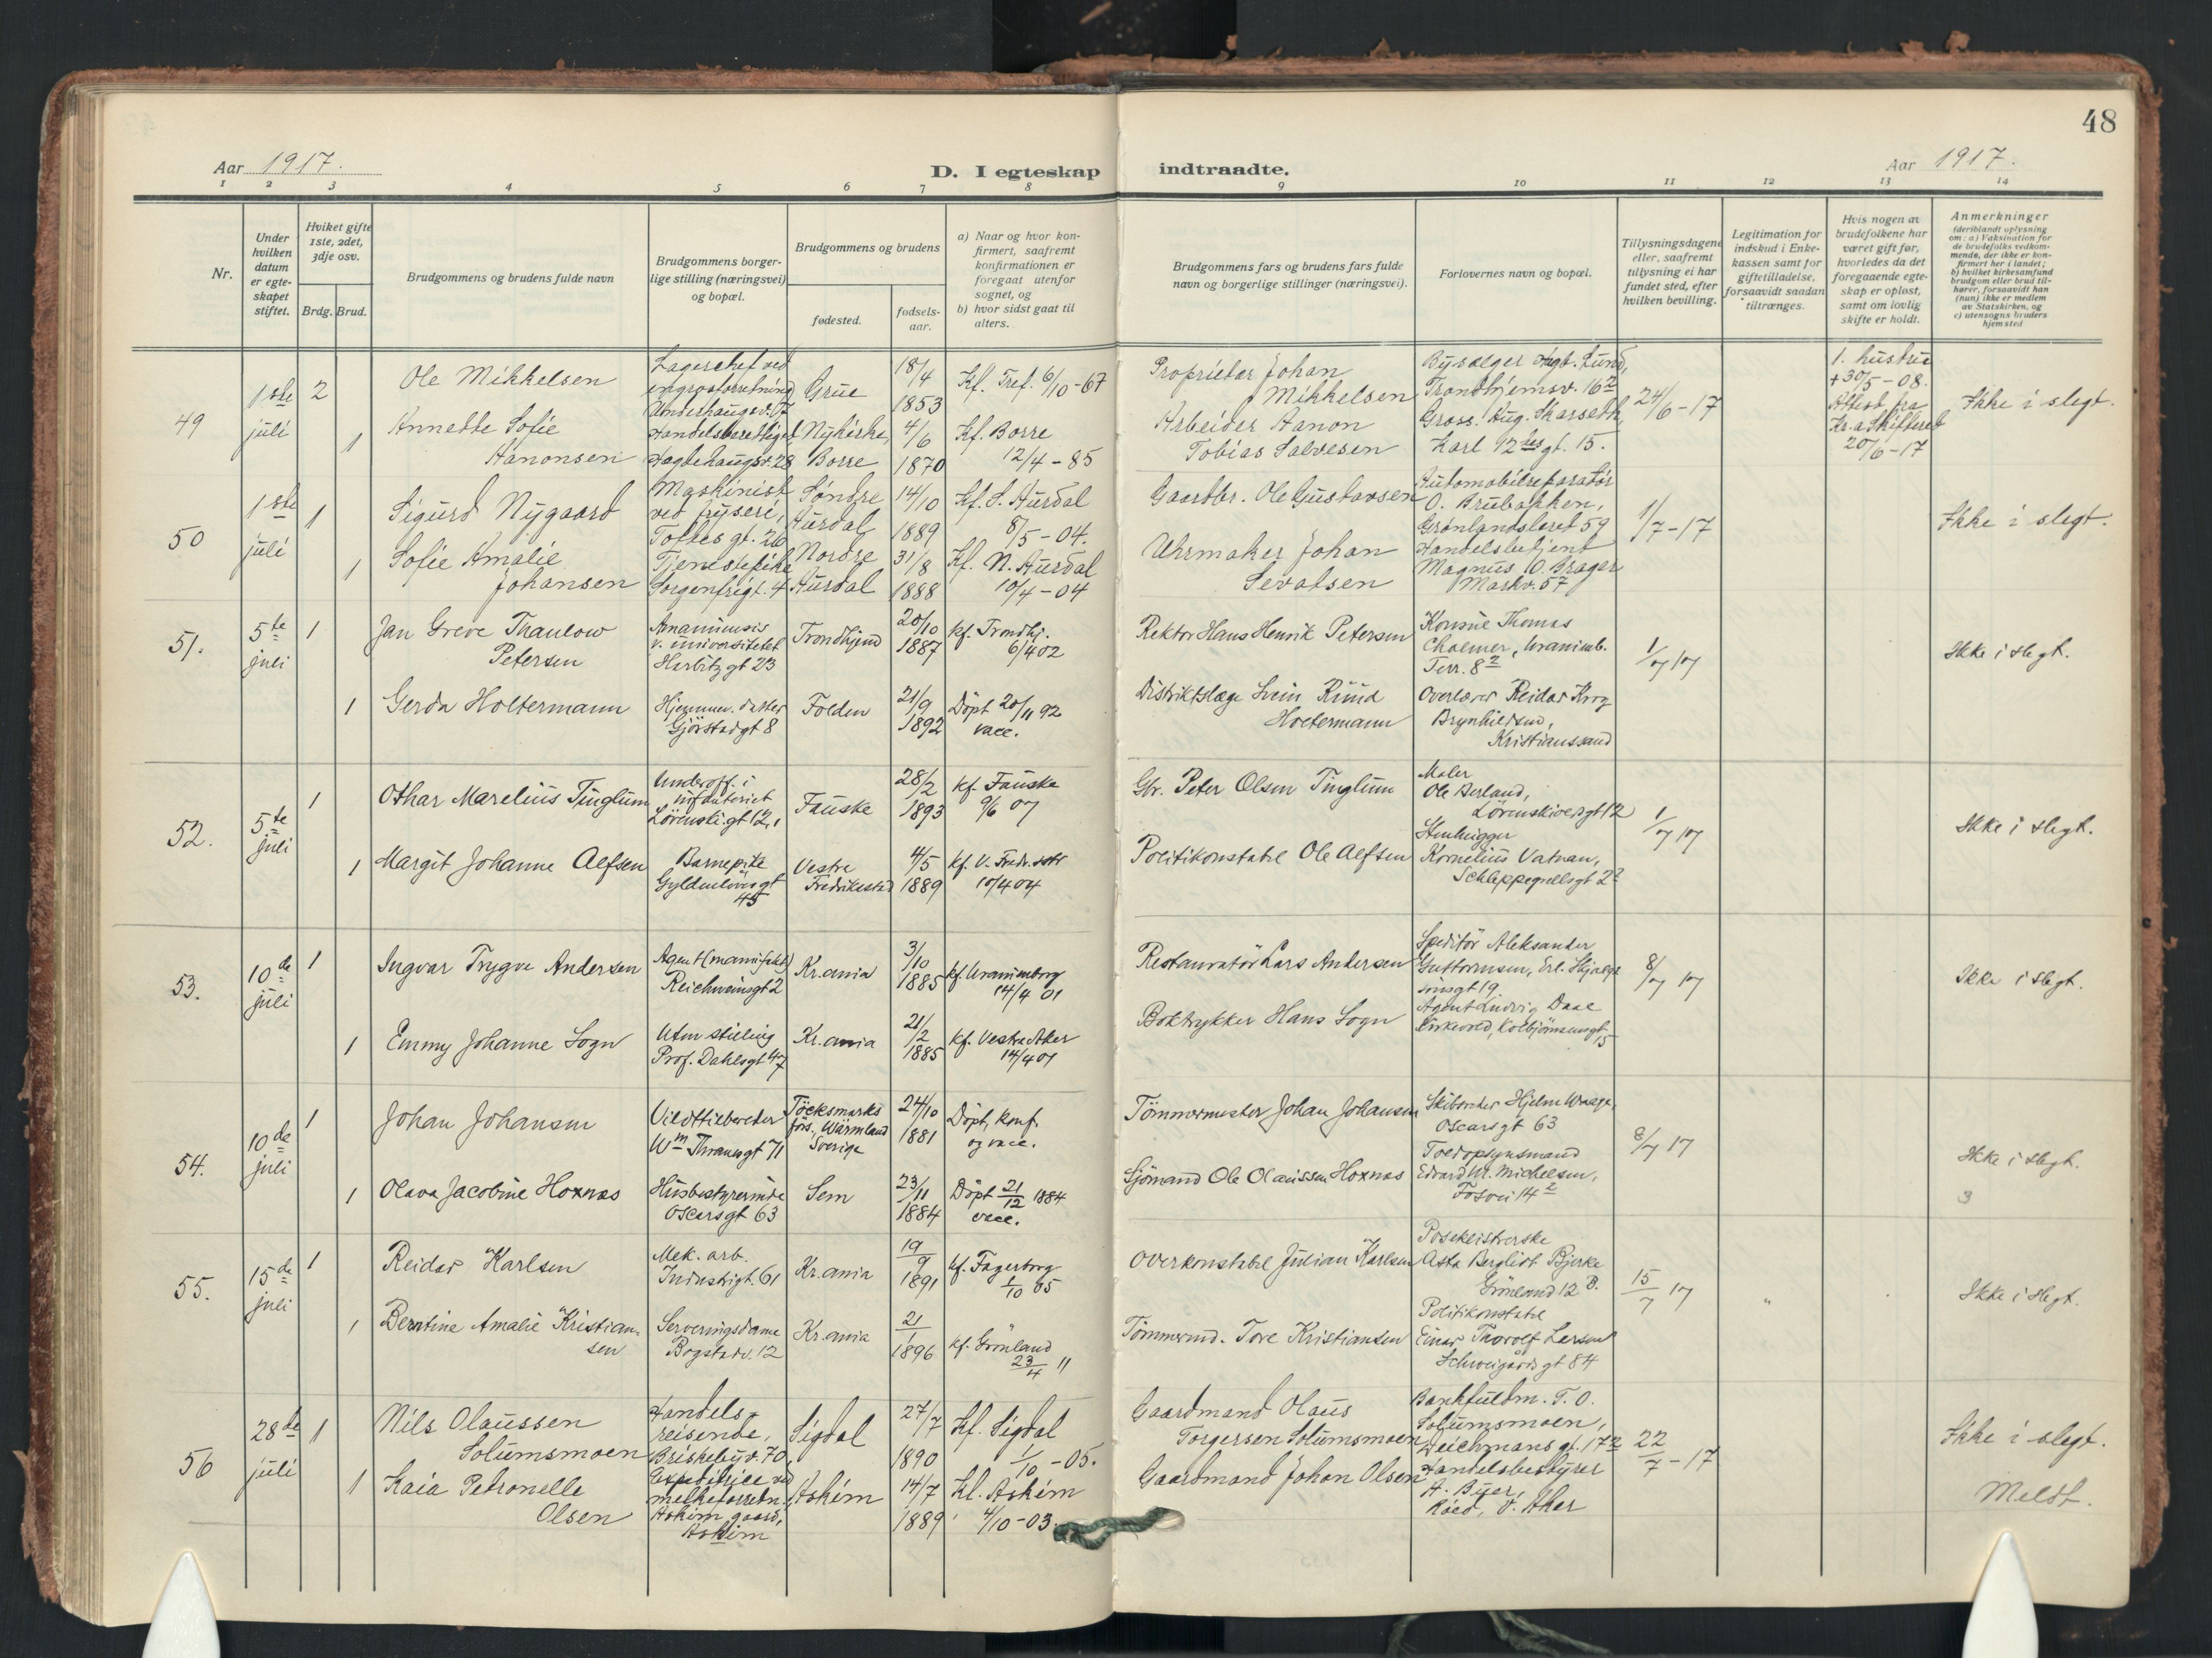 48
Aar 1917.
D. I egteskap indtraadte.
Aar 1917.
1 2 3 4 5 6 7 8 9 10 11 12 13 14
Nr.
Under hvilken datum er egteskapet stiftet.
Hviket gifte 1ste, 2det, 3dje osv.
Brdg. Brud.
Brudgommens og brudens fulde navn
Brudgommens borgerlige stilling (næringsvei) og bopæl.
Brudgommens og brudens
fødested.
fødselsaar.
a) Naar og hvor konfirmert, saafremt konfirmationen er foregaat utenfor sognet, og
b) hvor sidst gaat til alters.
Brudgommens fars og brudens fars fulde navn og borgerlige stillinger (næringsvei).
Forlovernes navn og bopæl.
Tillysningsdagene eller, saafremt tillysning ei har fundet sted, efter hvilken bevilling.
Legitimation for indskud i Enkekassen samt for giftetilladelse, forsaavidt saadan tiltrænges.
Hvis nogen av brudefolkene har været gift før, hvorledes da det foregaaende egteskap er opløst, samt om lovlig skifte er holdt.
Anmerkninger (deriblandt oplysning om: a) Vaksination for de brudefolks vedkommende, der ikke er konfirmert her i landet; b) hvilket kirkesamfund brudgom eller brud tilhører, forsaavidt han (hun) ikke er medlem av Statskirken, og c) utensogns bruders hjemsted
49
1ste juli
2
Ole Mikkelsen
Lagerchef ved engrosforretning
Grue
18/4 1853
Kf. Tref. 6/10-67
Proprietær Johan Mikkelsen
Trondhjemsv. 16²
24/6-17
1. hustru
+30/5-08.
Attest fra
20/6-17
Ikke i slegt.
1
Annette Sofie Hanonsen
Handelsberettiget
Nykirke, Borre
4/6 1870
Kf. Borre
12/4-85
Arbeider Hanon Tobias Salvesen
Gross. Aug. Skarseth,
Karl 12tes gt. 15.
50
1ste juli
1
Sigurd Nygaard
Maskinist ved fryseri,
Toftes gt. 26
Søndre Aurdal
14/10 1889
Kf. S. Aurdal
8/5-04.
Gaardbr. Ole Gustavsen
Automobilreparatør
O. Brubakken,
Grønlandsleret 59
1/7-17
Ikke i slegt.
1
Sofie Amalie Johansen
Tjenestepike
Sorgenfrigt. 4
Nordre Aurdal
31/8 1888
Kf. N. Aurdal
10/4-04
Uhrmaker Johan Sevalsen
Handelsbetjent
Magnus O. Brager
Markv. 57
51.
5te juli
1
Jan Greve Thaulow Petersen
Amanuensis
v. universitetet
Harbitzgt 23
Trondhjem
20/10 1887
kf. Trondhj.
6/4 02
Rektor Hans Henrik Petersen
Konsul Thomas
Terr. 8²
1/7 17
Ikke i slegt.
1
Gerda Holtermann
Hjemmev. datter
Gjörstadgt 8
Folden
21/9 1892
Döpt 20/11 92
vacc.
Distriktslæge Svein Rund Holtermann
Overlærer Reidar Krog
Brynhildsen,
Kristianssand
52.
5te juli
1
Othar Marelius Tinglum
Underoff. i infanteriet
Fauske
28/2 1893
kf. Fauske
9/6 07
Gbr. Peter Olsen Tinglum
Maler
Ole Berland,
1/7 17
Ikke i slegt.
1
Margit Johanne Alfsen
Barnepike
Gyldenlövesgt 45
Vestre Fredrikstad
4/5 1889
kf. V. Fredr.stad
10/4 04
Politikonstabel Ole Alfsen
Stenhugger
Kornelius Vatnan,
Schleppegrellsgt 2²
53.
10de juli
1
Ingvar Trygve Andersen
Agent (manufakt)
Reichweinsgt 2
Kr.ania
3/10 1885
kf. Uranienborg
14/4 01
Restauratör Lars Andersen
Speditör Aleksander
Guttormsen, Erl. Skjalgssonsgt 19.
8/7 17
Ikke i slegt.
1
Emmy Johanne Sogn
Uten stilling
Prof. Dahlsgt 47
Kr.ania
21/2 1885
kf. Vestre Aker
14/4 01
Boktrykker Hans Sogn
Agent Ludvig Daae
54.
10de juli
1
Johan Johansen
Vildthandler
Wm Thranesgt 71
Töcksmarks förs., Wärmland
Sverige
24/10 1881
Döpt, konf.
og vacc.
Tömmermester Johan Johansen
Oscarsgt 63
8/7 17
Ikke i slegt.
3
1
Olava Jacobine Hoxnæs
Husbestyrerinde
Oscarsgt 63
Sem
23/11 1884
Döpt 21/12 1884
vacc.
Sjömand Ole Olaussen Hoxnæs
Toldopsynsmand
Edvard M. Michelsen,
55.
15de juli
1
Reidar Karlsen
Mek. arb.
Industrigt. 61
Kr.ania
19/9 1891
kf. Fagerborg
1/10 05
Overkonstabel Julian Karlsen
Poseklisterske
Asta Bergliot Bjerke
Grönland 12 B.
15/7 17
Ikke i slegt.
1
Berntine Amalie Kristiansen
Serveringsdame
Bogstadv. 12
Kr.ania
21/1 1896
kf. Grönland
23/4 11
Tömmermd. Tore Kristiansen
Politikonstabel
Einar Thorolf Larsen
Schweigårdsgt 84
56
28de juli
1
Nils Olaussen Solumsmoen
Handelsreisende,
Briskebyv. 70
Sigdal
27/7 1890
Kf. Sigdal
1/10-05.
Gaardmand Olaus Torgersen Solumsmoen
Bankfuldm. T. O.
Solumsmoen,
Deichmansgt. 17²
22/7-17
Ikke i slegt.
1
Kaia Petronelle Olsen
Expeditrice ved melkeforretn.
Askim gaard,
Askim
Askim
14/7 1889
Kf. Askim
4/10-03.
Gaardmand Johan Olsen
Handelsbestyrer
V. Aker
Meldt.